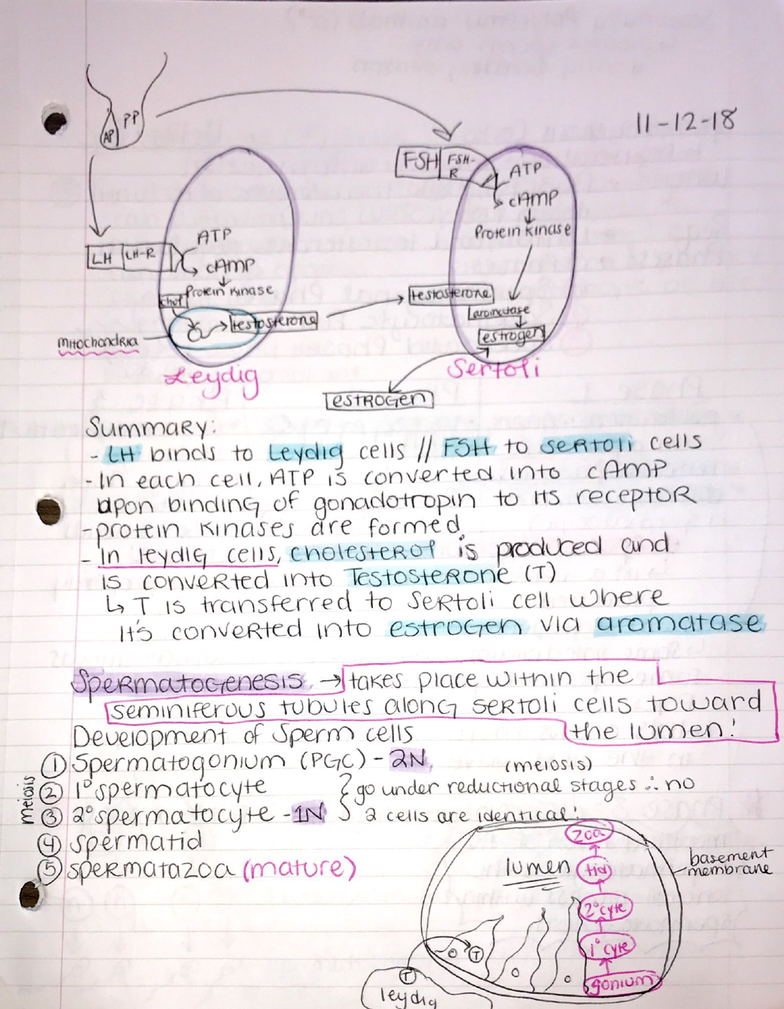 11-12-18
AP PP
FSH FSH-R
ATP
cAMP
Protein Kinase
testosterone
aromatase
estrogen
Sertoli
LH LH-R
ATP
cAMP
Protein Kinase
chol
testosterone
mitochondria
Leydig
ESTROGEN
Summary:
- LH binds to Leydig cells // FSH to sertoli cells
- In each cell, ATP is converted into cAMP
upon binding of gonadotropin to its receptor
- protein kinases are formed
- In leydig cells, cholesterol is produced and
is converted into Testosterone (T)
↳ T is transferred to Sertoli cell where
it's converted into estrogen via aromatase
Spermatogenesis → takes place within the
seminiferous tubules along sertoli cells toward
the lumen!
Development of Sperm cells
① Spermatogonium (PGC) - 2N
(meiosis)
meiosis
② 1° spermatocyte } go under reductional stages ∴ no
③ 2° spermatocyte - 1N 2 cells are identical!
④ spermatid
⑤ spermatazoa (mature)
zoa
lumen
tid
2°cyte
1°cyte
gonium
basement
membrane
T
T
leydig